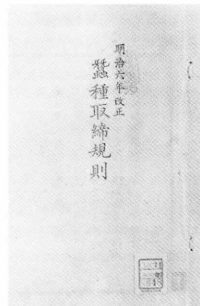 明治六年改正
蠶種取締規則